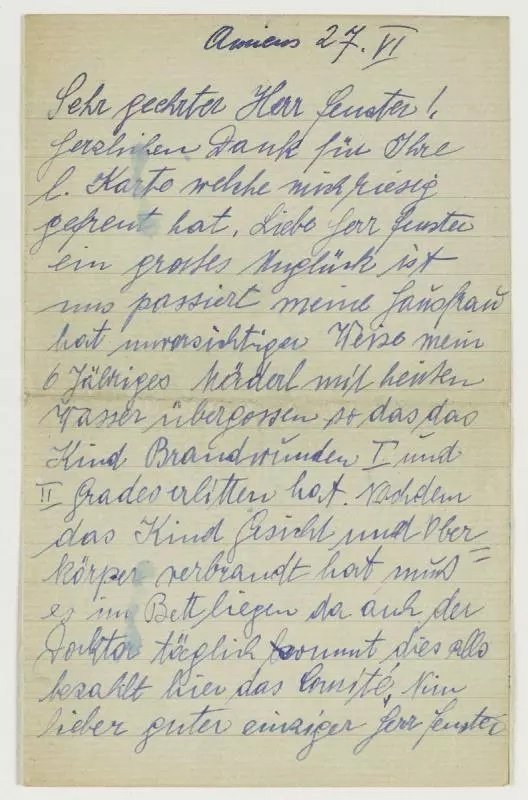 Amiens 27. VI
Sehr geehrter Herr Fenster!,
Herzlichen Dank für Ihre
l. Karte welche mich riesig
gefreut hat. Liebe Herr Fenster
ein grosses Unglück ist
uns passiert meine Hausfrau
hat unvorsichtiger Weise mein
6 Jähriges Mäderl mit heissen
Wasser übergossen so das das
Kind Brandwunden I und
II Grades erlitten hat. Nachdem
das Kind Gesicht und Ober=
körper verbrandt hat muss
es im Bett liegen da auch der
Doktor täglich kommt dies alls
bezahlt hier das Comité, Nun
lieber guter einziger Herr Fenster